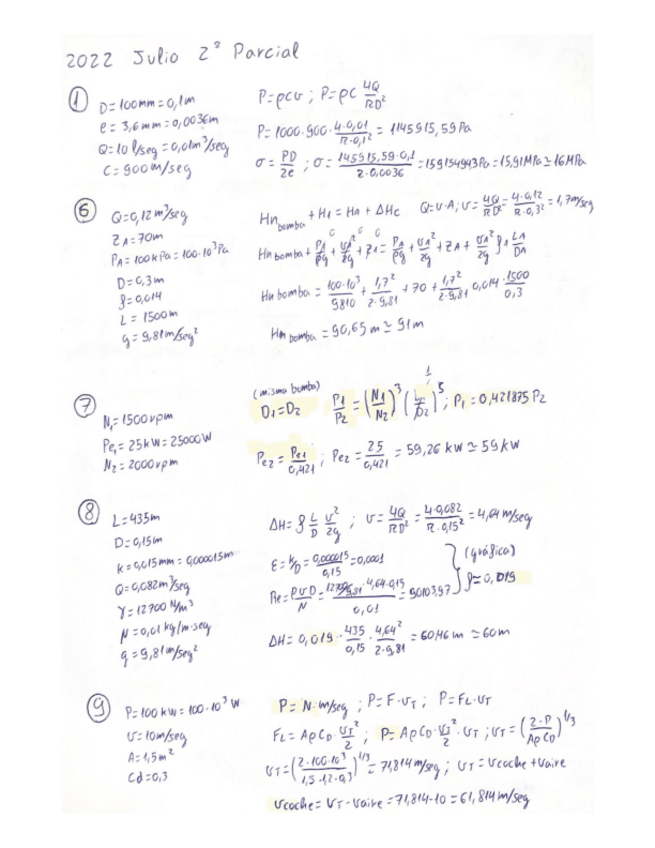 2022 Julio 2º Parcial
①
D=100mm=0,1m
e=3,6mm=0,0036m
Q=10 l/seg=0,01m³/seg
C=900m/seg
P=ρcv ; P=ρc 4Q/πD²
P=1000·900·4·0,01/π·0,1² = 1145915,59Pa
σ = PD/2e ; σ = 1145915,59·0,1/2·0,0036 = 15915494,3Pa=15,91MPa≃16MPa
⑥
Q=0,12m³/seg
ZA=70m
PA=100kPa=100·10³Pa
D=0,3m
f=0,014
L=1500m
g=9,81m/seg²
Hm bomba + H1 = HA + ΔHc Q=v·A; v=4Q/πD²=4·0,12/π·0,3²=1,7m/seg
Hm bomba + P1/ρg + v1²/2g + z1 = PA/ρg + vA²/2g + zA + vA²/2g f LA/DA
Hm bomba = 100·10³/9810 + 1,7²/2·9,81 + 70 + 1,7²/2·9,81 0,014·1500/0,3
Hm bomba = 90,65m≃91m
⑦
N1=1500rpm
Pe1=25kW=25000W
N2=2000rpm
(misma bomba)
D1=D2 P1/P2 = (N1/N2)³ (D1/D2)⁵ ; P1=0,421875 P2
1
Pe2 = Pe1/0,421 ; Pe2 = 25/0,421 = 59,26 kW≃59kW
⑧
L=435m
D=0,15m
k=0,015mm=0,000015m
Q=0,082m³/seg
γ=12700 N/m³
μ=0,01kg/m·seg
g=9,81m/seg²
ΔH= f L/D v²/2g ; v=4Q/πD²=4·0,082/π·0,15²=4,64m/seg
ε=k/D=0,000015/0,15=0,0001
Re=ρvD/μ=12700/9,81·4,64·0,15/0,01=90103,97
(gráfica)
f=0,019
ΔH=0,019·435/0,15·4,64²/2·9,81=60,46m≃60m
⑨
P=100kW=100·10³W
v=10m/seg
A=1,5m²
Cd=0,3
P=N·m/seg ; P=F·vT ; P=FL·vT
FL=AρCD·vT²/2 ; P=AρCD·vT²/2·vT ; vT=(2·P/AρCD)^1/3
vT=(2·100·10³/1,5·1,2·0,3)^1/3=71,814m/seg ; vT=vcoche+vaire
vcoche=vT-vaire=71,814-10=61,814m/seg